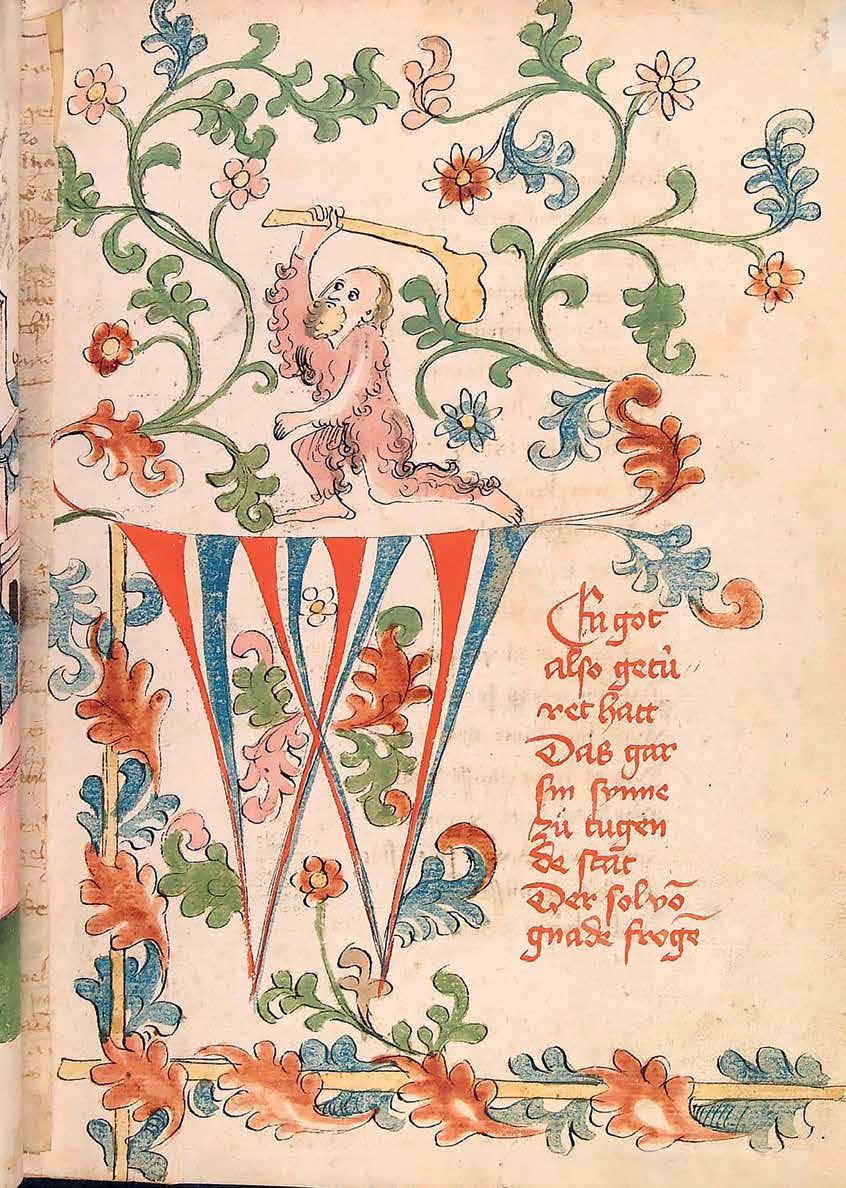 W
En got
also getů
ret hatt
Das gar
sin synne
zů tugen
de stat
Der sol vō
gnade frogē